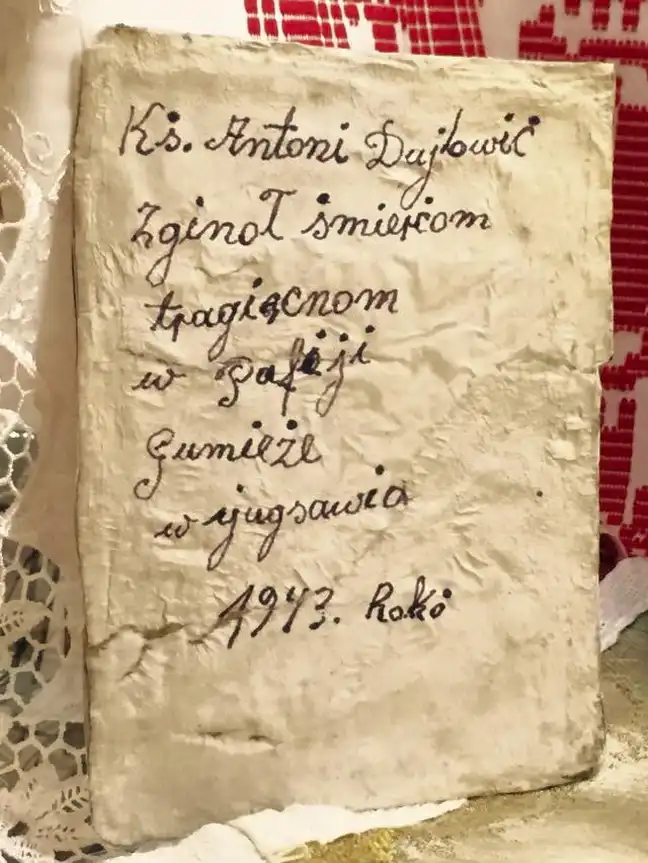 Kś. Antoni Dujlowić
Zginoł śmierciom
tragiscnom
w Pafiji
Gumieże
w yjugsawia
1943. Roku